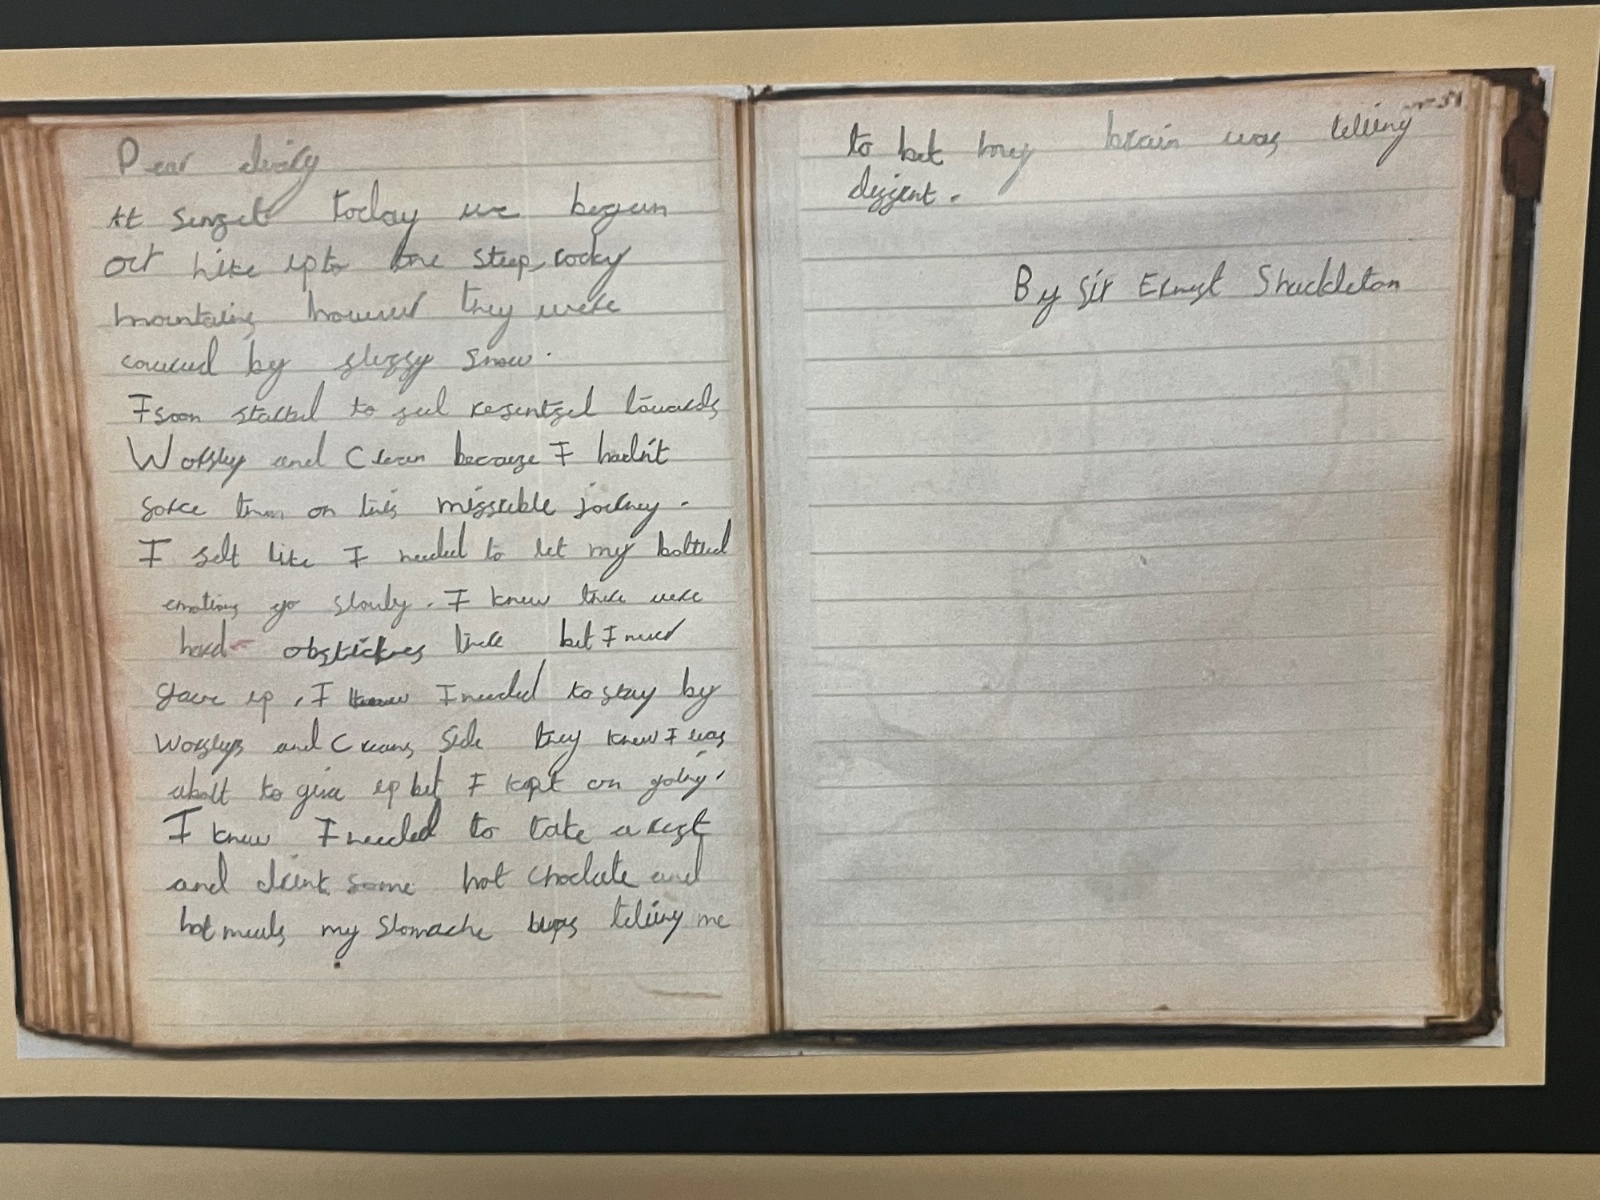 Dear diary
At sunset today we begun
our hike up to the steep, rocky
mountains however they were
covered by slussy snow.
I soon started to feel resentful towards
Worsley and Crean because I hadn't
force them on this missrible jorney.
I felt like I needed to let my bottled
emotions go slowly. I knew there were
hard obstickles there but I never
gave up, I knew I needed to stay by
Worsleys and Creans side they knew I was
abolt to give up but I kept on going.
I knew I needed to take a rest
and drink some hot choclate and
hot meals my stomache telling me
to but my brain was telling
By Sir Ernest Shackleton